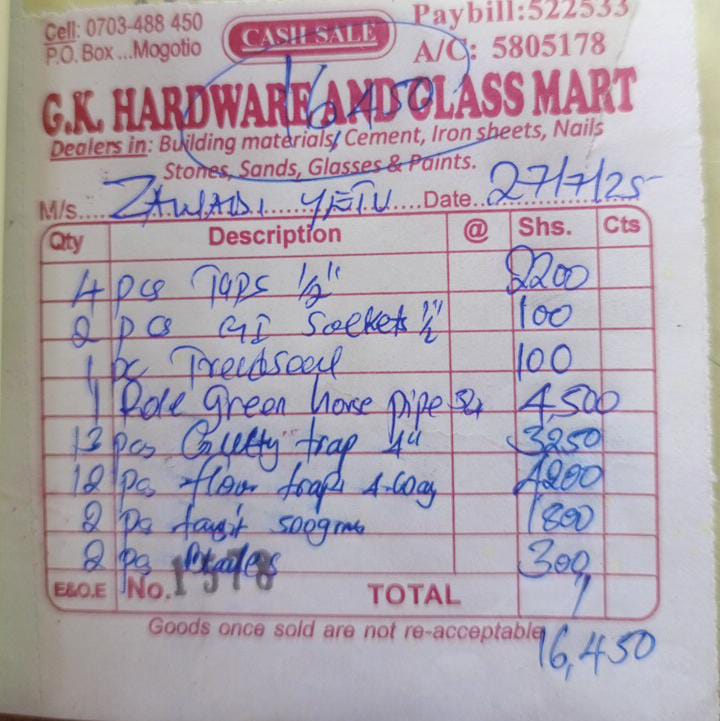 Cell: 0703-488 450
P.O. Box ...Mogotio
CASH SALE
Paybill:522533
A/C: 5805178
16,450
G.K. HARDWARE AND GLASS MART
Dealers in: Building materials, Cement, Iron sheets, Nails
Stones, Sands, Glasses & Paints.
M/s....ZAWADI YETU....Date 27/7/25
Qty Description @ Shs. Cts
4 pcs Taps 1/2" 2200
2 pcs GI Sockets 1/2" 100
1 pc 100
1 Role Green horse pipe 3/4 4,500
13 pcs Gully trap 4" 3250
12 pcs floor traps 4-way 4200
2 pcs tangit 500gms 1800
2 pcs 300
E&O.E No. 1578 TOTAL
Goods once sold are not re-acceptable
16,450